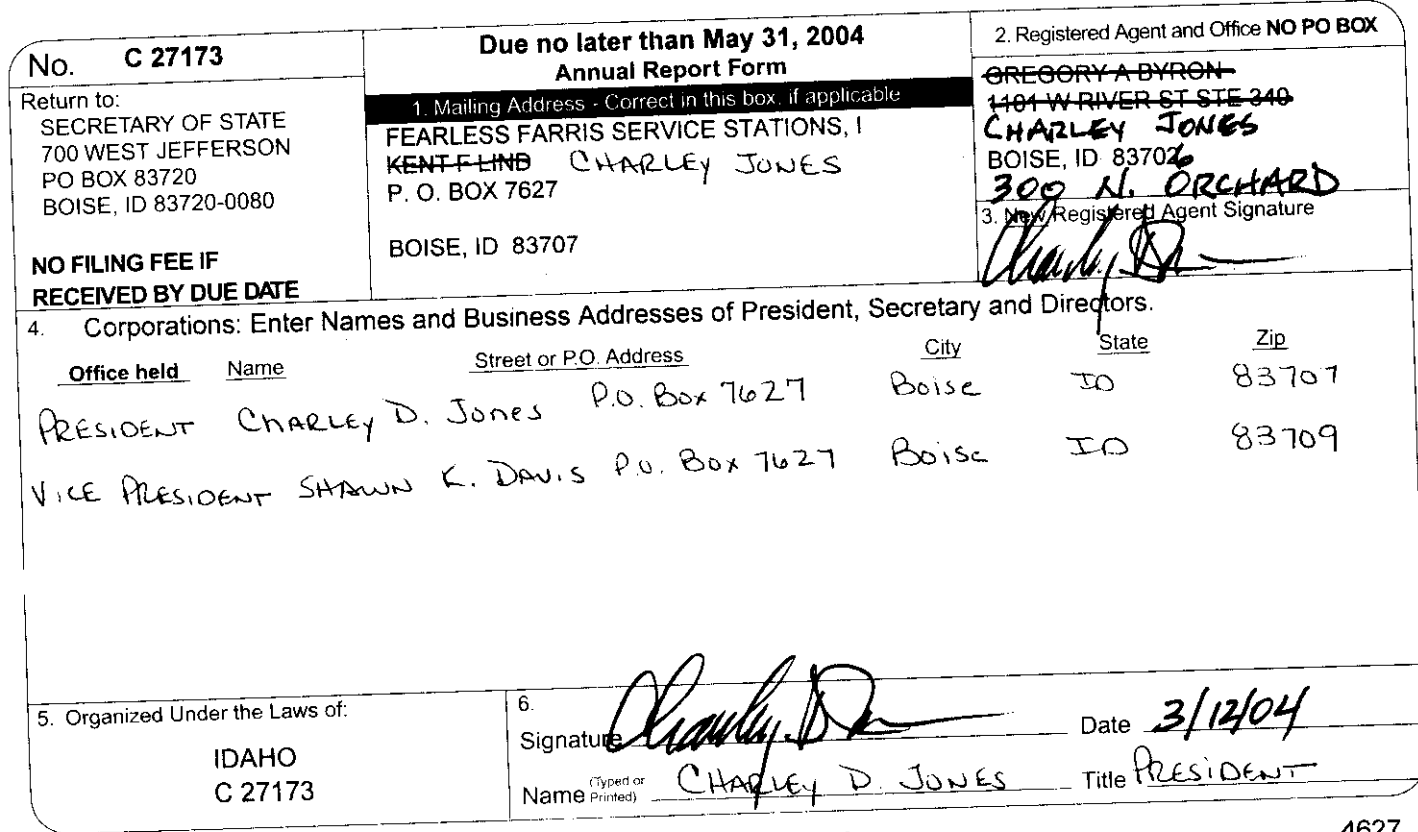 No. C 27173
Return to:
SECRETARY OF STATE
700 WEST JEFFERSON
PO BOX 83720
BOISE, ID 83720-0080
NO FILING FEE IF
RECEIVED BY DUE DATE
Due no later than May 31, 2004
Annual Report Form
1. Mailing Address - Correct in this box, if applicable
FEARLESS FARRIS SERVICE STATIONS, I
KENT F LIND CHARLEY JONES
P. O. BOX 7627
BOISE, ID 83707
2. Registered Agent and Office NO PO BOX
GREGORY A BYRON
1101 W RIVER ST STE 340
CHARLEY JONES
BOISE, ID 83706
300 N. ORCHARD
3. New Registered Agent Signature
4. Corporations: Enter Names and Business Addresses of President, Secretary and Directors.
Office held Name Street or P.O. Address City State Zip
PRESIDENT CHARLEY D. Jones P.O. Box 7627 Boise ID 83707
VICE PRESIDENT SHAWN K. DAVIS P.O. Box 7627 Boise ID 83709
5. Organized Under the Laws of:
IDAHO
C 27173
6.
Signature Date 3/12/04
Name (Typed or Printed) CHARLEY D. JONES Title PRESIDENT
4627